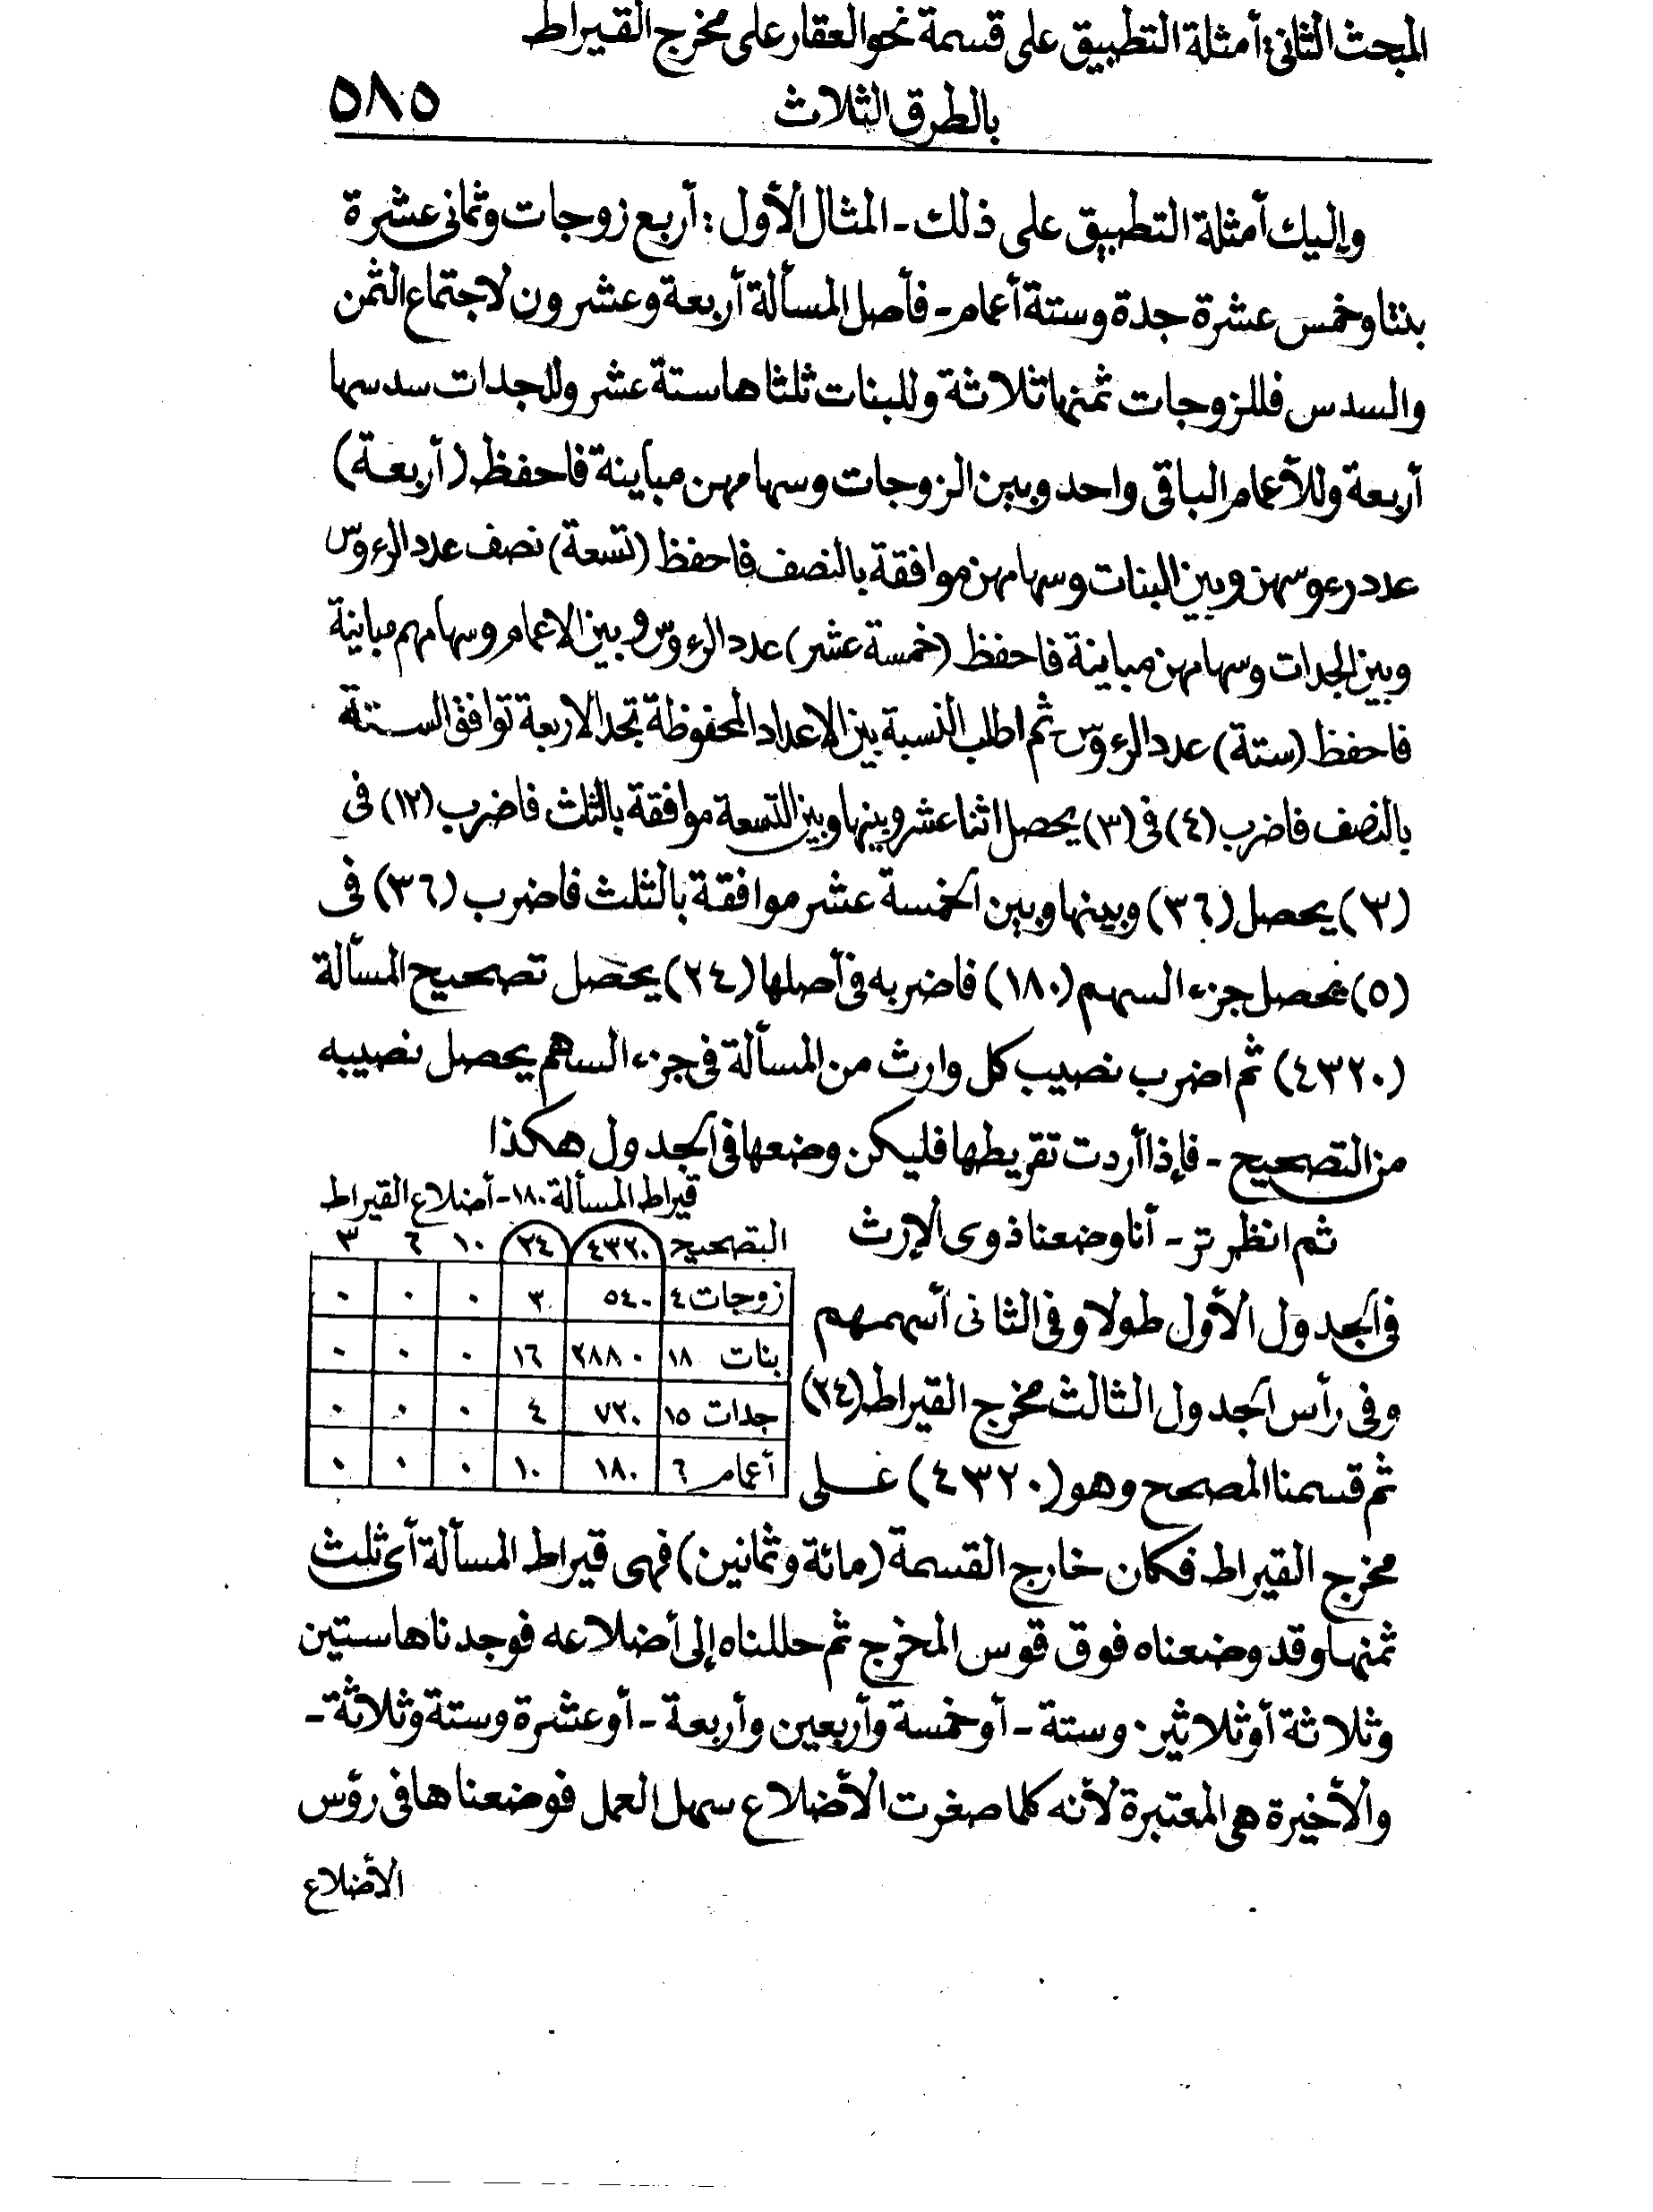 المبحث الثانى: أمثلة التطبيق على قسمة نحو العقار على مخرج القيراط
بالطرق الثلاث
٥٨٥
وإليك أمثلة التطبيق على ذلك - المثال الأول: أربع زوجات وثمانى عشرة
بنتا وخمس عشرة جدة وستة أعمام - فأصل المسألة أربعة وعشرون لاجتماع الثمن
والسدس فللزوجات ثمنها ثلاثة وللبنات ثلثاها ستة عشر وللجدات سدسها
أربعة وللأعمام الباقى واحد وبين الزوجات وسهامهن مباينة فاحفظ (أربعة)
عدد رءوسهن وبين البنات وسهامهن موافقة بالنصف فاحفظ (تسعة) نصف عدد الرءوس
وبين الجدات وسهامهن مباينة فاحفظ (خمسة عشر) عدد الرءوس وبين الاعمام وسهامهم مباينة
فاحفظ (ستة) عدد الرءوس ثم اطلب النسبة بين الاعداد المحفوظة تجد الاربعة توافق الستة
بالنصف فاضرب (٤) فى (٣) يحصل اثنا عشر وبينها وبين التسعة موافقة بالثلث فاضرب (١٢) فى
(٣) يحصل (٣٦) وبينها وبين الخمسة عشر موافقة بالثلث فاضرب (٣٦) فى
(٥) يحصل جزء السهم (١٨٠) فاضربه فى أصلها (٢٤) يحصل تصحيح المسألة
(٤٣٢٠) ثم اضرب نصيب كل وارث من المسألة فى جزء السهم يحصل نصيبه
من التصحيح - فإذا أردت تقريطها فليكن وضعها فى الجدول هكذا
قيراط المسألة ١٨٠ - أضلاع القيراط
ثم انظر تر - أنا وضعنا ذوى الإرث
التصحيح ٤٣٢٠ ٢٤ ١٠ ٦ ٣
زوجات ٤ ٥٤٠ ٣ ٠ ٠ ٠
فى الجدول الأول طولا وفى الثانى أسهمهم
بنات ١٨ ٢٨٨٠ ١٦ ٠ ٠ ٠
وفى رأس الجدول الثالث مخرج القيراط (٢٤)
جدات ١٥ ٧٢٠ ٤ ٠ ٠ ٠
أعمام ٦ ١٨٠ ١٠ ٠ ٠ ٠
ثم قسمنا المصحح وهو (٤٣٢٠) على
مخرج القيراط فكان خارج القسمة (مائة وثمانين) فهى قيراط المسألة أى ثلث
ثمنها وقد وضعناه فوق قوس المخرج ثم حللناه إلى أضلاعه فوجدناها ستين
وثلاثة أو ثلاثين وستة - أو خمسة وأربعين وأربعة - أو عشرة وستة وثلاثة -
والأخيرة هى المعتبرة لأنه كلما صغرت الأضلاع سهل العمل فوضعناها فى رؤس
الأضلاع